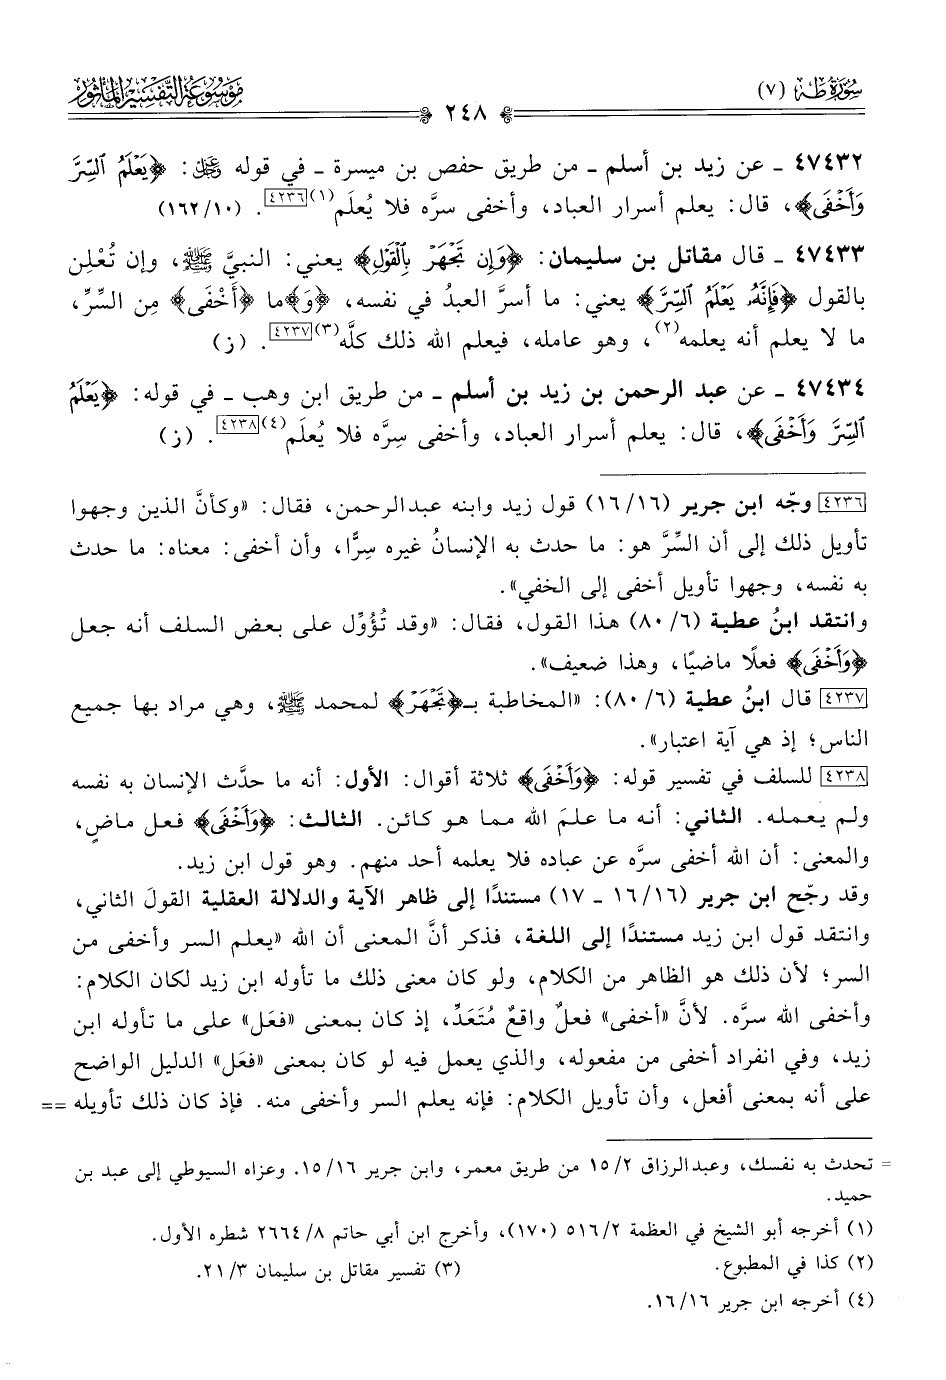 سُورَةُ طه (٧)
٢٤٨
مَوْسُوعَةُ التَّفْسِيرِ المَأْثُور
٤٧٤٣٢ ـ عن زيد بن أسلم ـ من طريق حفص بن ميسرة ـ في قوله ﷿: ﴿يَعْلَمُ ٱلسِّرَّ
وَأَخْفَى﴾، قال: يعلم أسرار العباد، وأخفى سرَّه فلا يُعلَم(١)[٤٢٣٦]. (١٠/ ١٦٢)
٤٧٤٣٣ ـ قال مقاتل بن سليمان: ﴿وَإِن تَجْهَرْ بِٱلْقَوْلِ﴾ يعني: النبيَّ ﷺ، وإن تُعْلِن
بالقول ﴿فَإِنَّهُۥ يَعْلَمُ ٱلسِّرَّ﴾ يعني: ما أسرَّ العبدُ في نفسه، ﴿وَ﴾ما ﴿أَخْفَى﴾ مِن السِّرِّ،
ما لا يعلم أنه يعلمه(٢)، وهو عامله، فيعلم الله ذلك كلَّه(٣)[٤٢٣٧]. (ز)
٤٧٤٣٤ ـ عن عبد الرحمن بن زيد بن أسلم ـ من طريق ابن وهب ـ في قوله: ﴿يَعْلَمُ
ٱلسِّرَّ وَأَخْفَى﴾، قال: يعلم أسرار العباد، وأخفى سِرَّه فلا يُعلَم(٤)[٤٢٣٨]. (ز)
[٤٢٣٦] وجّه ابن جرير (١٦/١٦) قول زيد وابنه عبدالرحمن، فقال: «وكأنَّ الذين وجهوا
تأويل ذلك إلى أن السِّرَّ هو: ما حدث به الإنسانُ غيره سِرًّا، وأن أخفى: معناه: ما حدث
به نفسه، وجهوا تأويل أخفى إلى الخفي».
وانتقد ابنُ عطية (٦/ ٨٠) هذا القول، فقال: «وقد تُؤُوِّل على بعض السلف أنه جعل
﴿وَأَخْفَى﴾ فعلًا ماضيًا، وهذا ضعيف».
[٤٢٣٧] قال ابنُ عطية (٦/ ٨٠): «المخاطبة بـ﴿تَجْهَرْ﴾ لمحمد ﷺ، وهي مراد بها جميع
الناس؛ إذ هي آية اعتبار».
[٤٢٣٨] للسلف في تفسير قوله: ﴿وَأَخْفَى﴾ ثلاثة أقوال: الأول: أنه ما حدَّث الإنسان به نفسه
ولم يعمله. الثاني: أنه ما علمَ الله مما هو كائن. الثالث: ﴿وَأَخْفَى﴾ فعل ماضٍ،
والمعنى: أن الله أخفى سرَّه عن عباده فلا يعلمه أحد منهم. وهو قول ابن زيد.
وقد رجّح ابن جرير (١٦/١٦ ـ ١٧) مستندًا إلى ظاهر الآية والدلالة العقلية القولَ الثاني،
وانتقد قول ابن زيد مستندًا إلى اللغة، فذكر أنَّ المعنى أن الله «يعلم السر وأخفى من
السر؛ لأن ذلك هو الظاهر من الكلام، ولو كان معنى ذلك ما تأوله ابن زيد لكان الكلام:
وأخفى الله سرَّه. لأنَّ «أخفى» فعلٌ واقعٌ مُتَعَدٍّ، إذ كان بمعنى «فعَل» على ما تأوله ابن
زيد، وفي انفراد أخفى من مفعوله، والذي يعمل فيه لو كان بمعنى «فعَل» الدليل الواضح
على أنه بمعنى أفعل، وأن تأويل الكلام: فإنه يعلم السر وأخفى منه. فإذ كان ذلك تأويله ==
= تحدث به نفسك، وعبدالرزاق ٢/ ١٥ من طريق معمر، وابن جرير ١٦/ ١٥. وعزاه السيوطي إلى عبد بن
حميد.
(١) أخرجه أبو الشيخ في العظمة ٢/ ٥١٦ (١٧٠)، وأخرج ابن أبي حاتم ٨/ ٢٦٦٤ شطره الأول.
(٢) كذا في المطبوع. (٣) تفسير مقاتل بن سليمان ٣/ ٢١.
(٤) أخرجه ابن جرير ١٦/ ١٦.